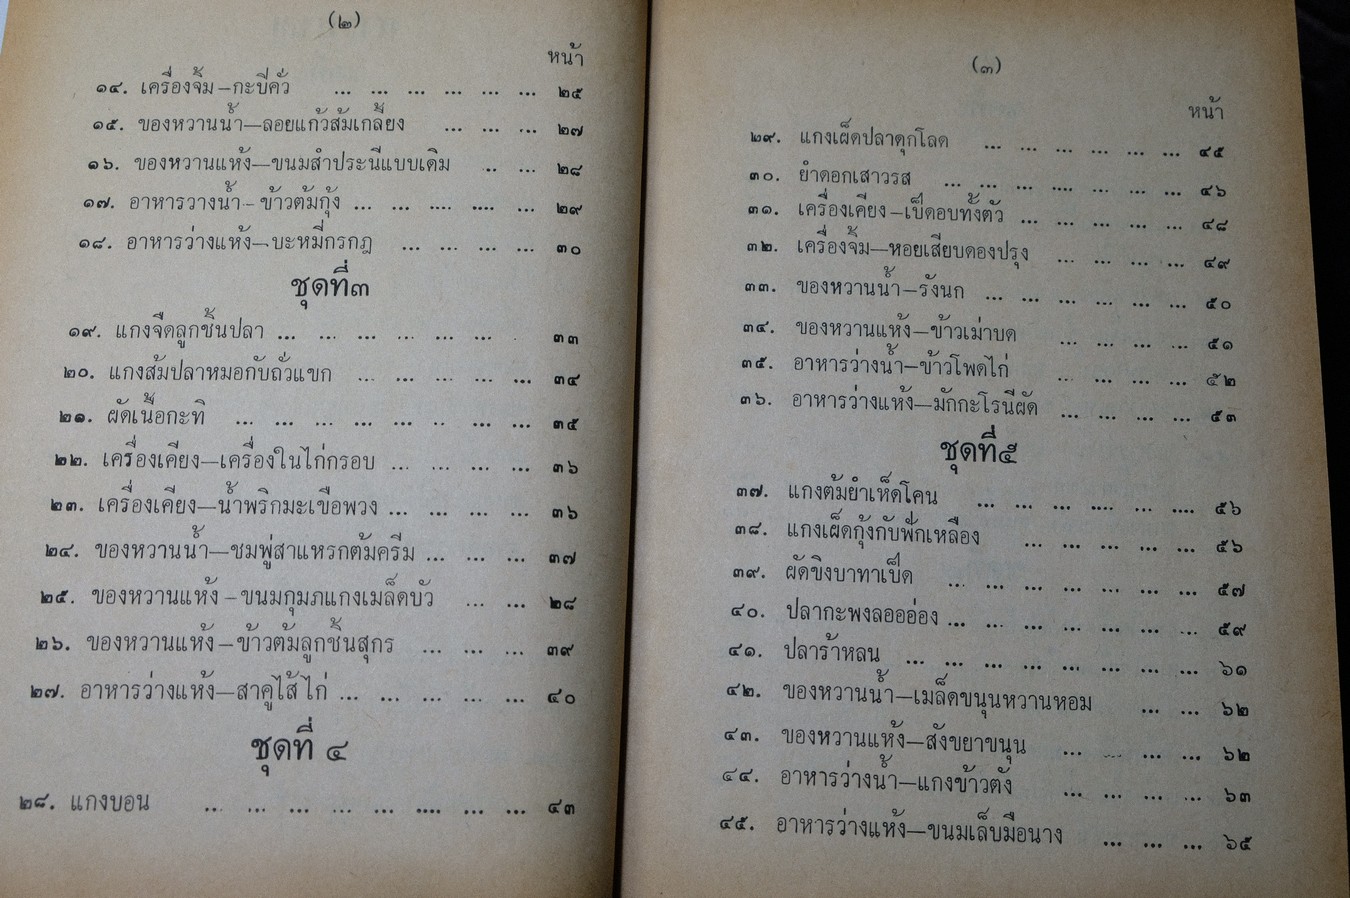 (๒)
หน้า
๑๔. เครื่องจิ้ม–กะปิคั่ว ... ... ... ... ... ... ๒๕
๑๕. ของหวานน้ำ–ลอยแก้วส้มเกลี้ยง ... ... ... ๒๗
๑๖. ของหวานแห้ง–ขนมสำประนีแบบเดิม .. ... ๒๘
๑๗. อาหารวางน้ำ–ข้าวต้มกุ้ง ... ... .... .... ... ๒๙
๑๘. อาหารว่างแห้ง–บะหมี่กรกฎ ... ... ... ... ๓๐
ชุดที่๓
๑๙. แกงจืดลูกชิ้นปลา ... ... ... ... ... ... ๓๓
๒๐. แกงส้มปลาหมอกับถั่วแขก ... ... ... ... ... ๓๔
๒๑. ผัดเนื้อกะทิ ... ... ... ... .. ... ... ๓๕
๒๒. เครื่องเคียง–เครื่องในไก่กรอบ ... ... ... ... ๓๖
๒๓. เครื่องเคียง–น้ำพริกมะเขือพวง ... ... ... ... ๓๖
๒๔. ของหวานน้ำ–ชมพู่สาแหรกต้มครีม ... ... ... ๓๗
๒๕. ของหวานแห้ง–ขนมกุมภแกงเมล็ดบัว ... ... ๒๘
๒๖. ของหวานแห้ง–ข้าวต้มลูกชิ้นสุกร ... ... ... ๓๙
๒๗. อาหารว่างแห้ง–สาคูไส้ไก่ ... ... ... ... ... ๔๐
ชุดที่ ๔
๒๘. แกงบอน ... ... ... ... ... .... ... ... ๔๓
(๓)
หน้า
๒๙. แกงเผ็ดปลาดุกโลด ... ... ... ... ... ... ๔๕
๓๐. ยำดอกเสาวรส ... ... ... .... ... ... ... ๔๖
๓๑. เครื่องเคียง–เป็ดอบทั้งตัว ... ... ... ... ... ๔๘
๓๒. เครื่องจิ้ม–หอยเสียบดองปรุง ... ... ... ... ๔๙
๓๓. ของหวานน้ำ–รังนก ... ... ... ... ... ... ๕๐
๓๔. ของหวานแห้ง–ข้าวเม่าบด ... ... ... ... ๕๑
๓๕. อาหารว่างน้ำ–ข้าวโพดไก่ ... ... ... ... ๕๒
๓๖. อาหารว่างแห้ง–มักกะโรนีผัด ... ... ... ... ๕๓
ชุดที่๕
๓๗. แกงต้มยำเห็ดโคน ... ... ... .... ... .... ๕๖
๓๘. แกงเผ็ดกุ้งกับฟักเหลือง ... ... ... ... ... ๕๖
๓๙. ผัดขิงบาทาเป็ด ... ... ... ... ... ... ... ๕๗
๔๐. ปลากะพงลอออ่อง ... ... ... ... ... ... ... ๕๙
๔๑. ปลาร้าหลน ... ... ... ... ... ... ... ... ๖๑
๔๒. ของหวานน้ำ–เมล็ดขนุนหวานหอม ... ... ๖๒
๔๓. ของหวานแห้ง–สังขยาขนุน ... ... ... ... ๖๒
๔๔. อาหารว่างน้ำ–แกงข้าวตัง ... ... ... ... ๖๓
๔๕. อาหารว่างแห้ง–ขนมเล็บมือนาง ... ... ... ๖๕